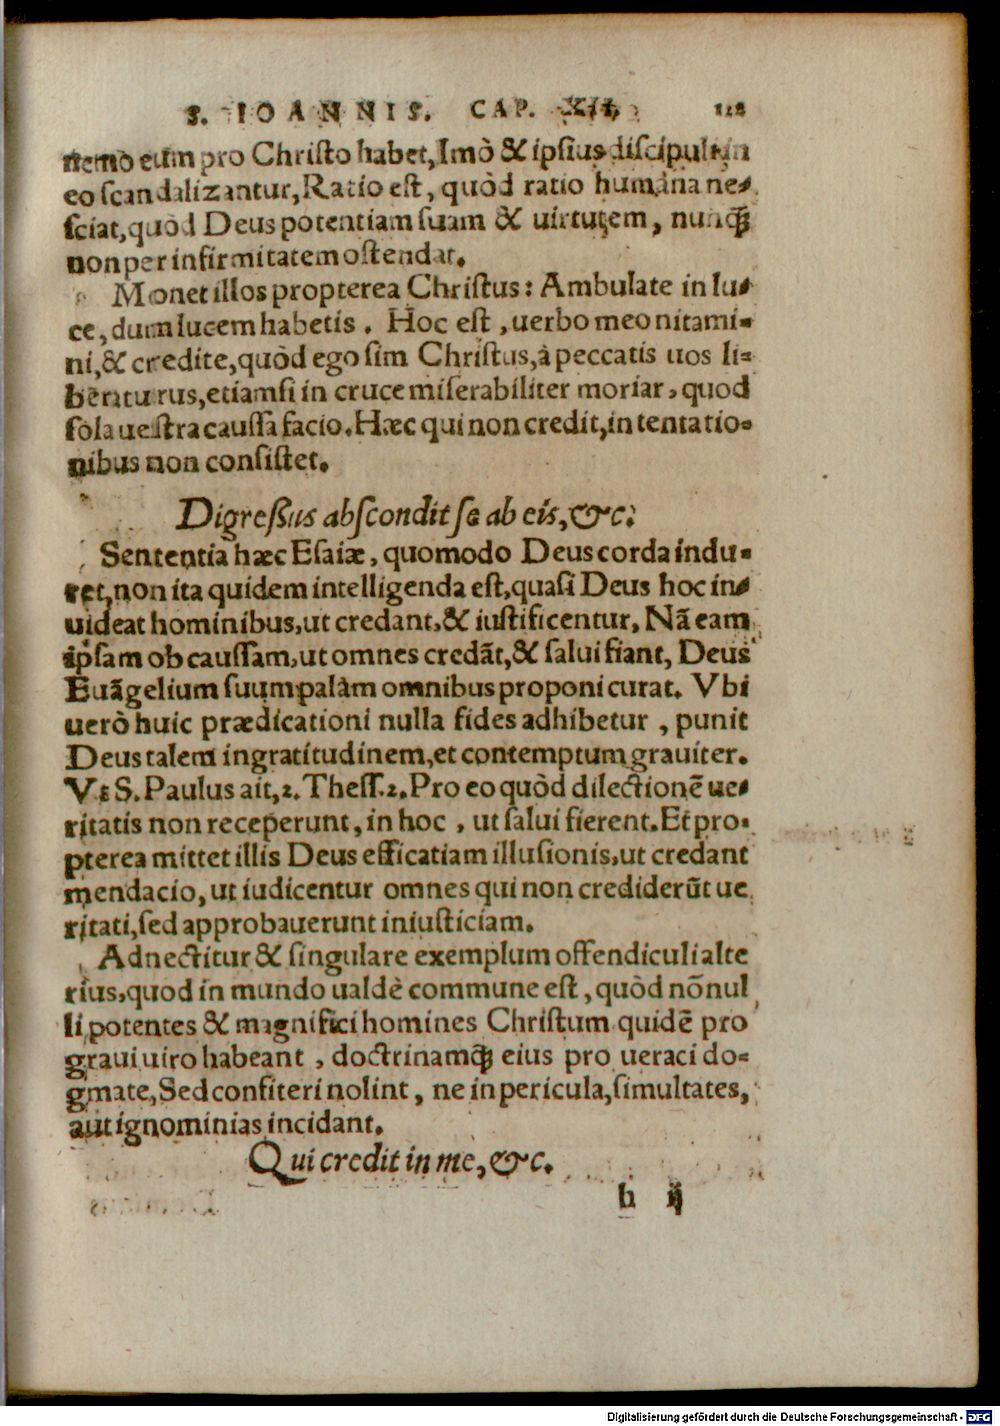 S. IOANNIS. CAP. XII. 118
nemo eum pro Christo habet, Imò & ipsius discipuli in
eo scandalizantur, Ratio est, quòd ratio humana ne⸗
sciat, quòd Deus potentiam suam & uirtutem, nunꝗ̃
non per infirmitatem ostendat.
Monet illos propterea Christus: Ambulate in lu⸗
ce, dum lucem habetis. Hoc est, uerbo meo nitami⸗
ni, & credite, quòd ego sim Christus, à peccatis uos li⸗
beraturus, etiamsi in cruce miserabiliter moriar, quod
sola uestra caussa facio. Hæc qui non credit, in tentatio⸗
nibus non consistet.
Digressus abscondit se ab eis, &c.
Sententia hæc Esaiæ, quomodo Deus corda indu⸗
ret, non ita quidem intelligenda est, quasi Deus hoc in⸗
uideat hominibus, ut credant, & iustificentur, Nã eam
ipsam ob caussam, ut omnes credãt, & salui fiant, Deus
Euãgelium suum palàm omnibus proponi curat. Vbi
uerò huic prædicationi nulla fides adhibetur, punit
Deus talem ingratitudinem, et contemptum grauiter.
Vt S. Paulus ait, 2. Thess. 2. Pro eo quòd dilectionẽ ue⸗
ritatis non receperunt, in hoc, ut salui fierent. Et pro⸗
pterea mittet illis Deus efficatiam illusionis, ut credant
mendacio, ut iudicentur omnes qui non crediderũt ue
ritati, sed approbauerunt iniusticiam.
Adnectitur & singulare exemplum offendiculi alte
rius, quod in mundo ualdè commune est, quòd nõnul
li potentes & magnifici homines Christum quidẽ pro
graui uiro habeant, doctrinamꝗ́ʒ eius pro ueraci do⸗
gmate, Sed confiteri nolint, ne in pericula, simultates,
aut ignominias incidant.
Qui credit in me, &c.
h ij
Digitalisierung gefördert durch die Deutsche Forschungsgemeinschaft - DFG